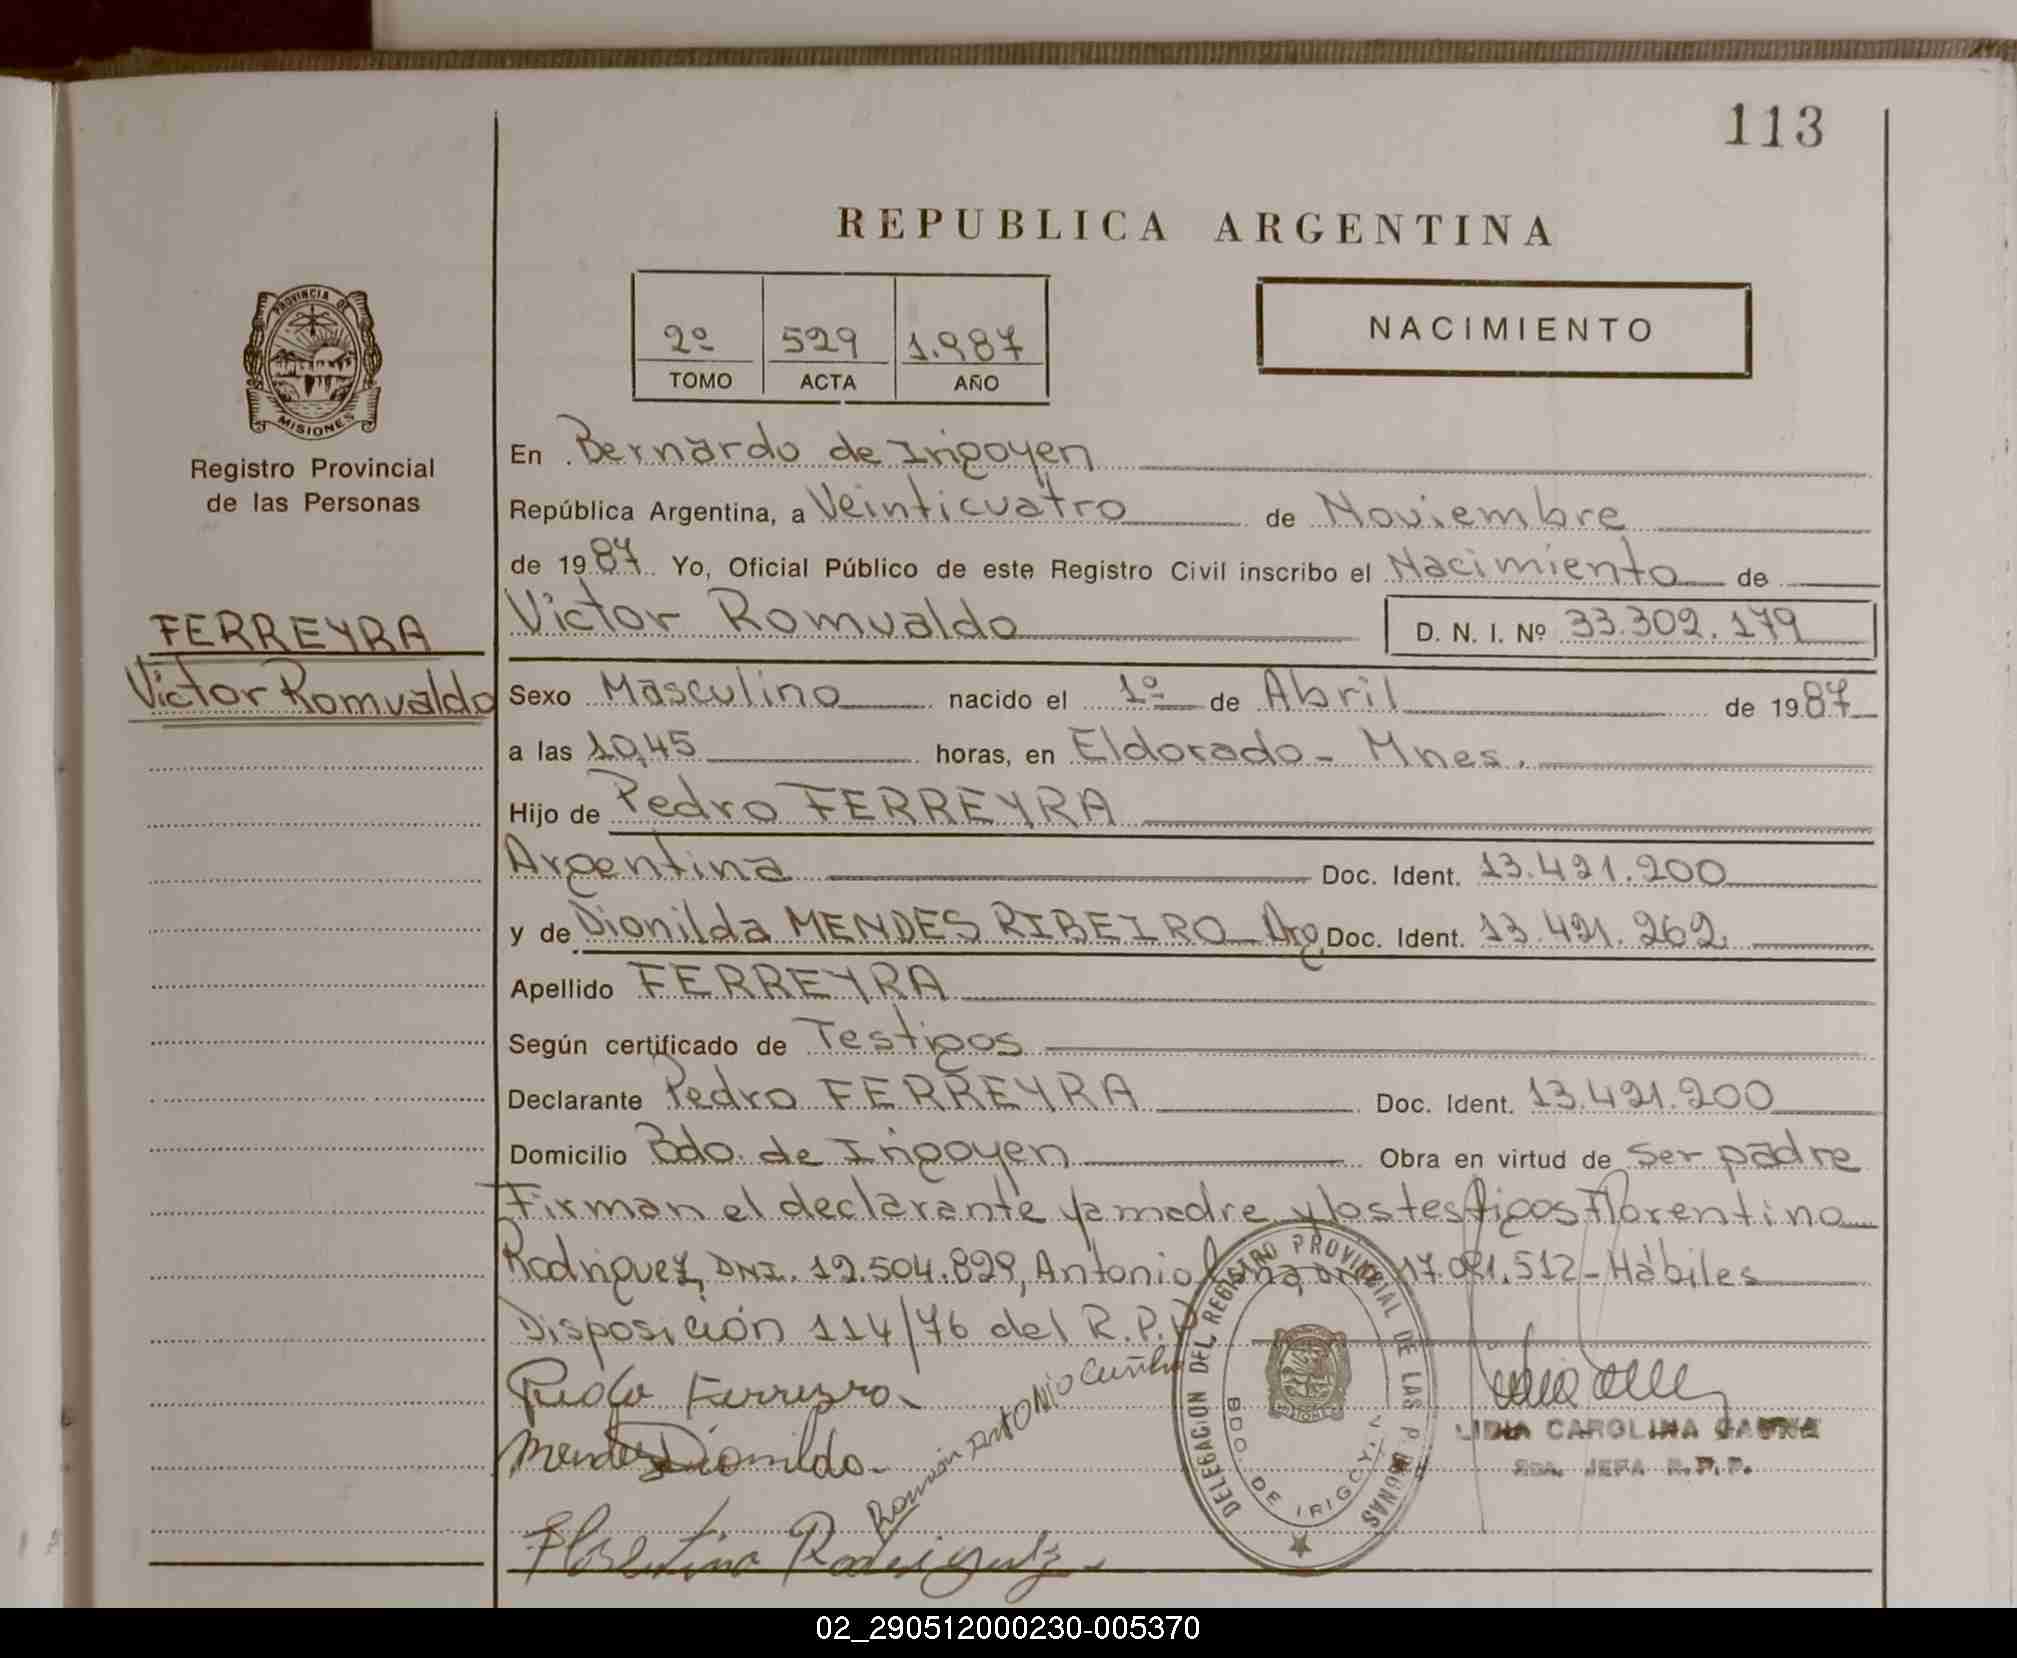 113
REPUBLICA ARGENTINA
2º 529 1.987
TOMO ACTA AÑO
NACIMIENTO
PROVINCIA DE
MISIONES
Registro Provincial
de las Personas
FERREYRA
Victor Romualdo
En Bernardo de Irigoyen
República Argentina, a Veinticuatro de Noviembre
de 1987 Yo, Oficial Público de este Registro Civil inscribo el Nacimiento de
Victor Romualdo D. N. I. Nº 33.302.179
Sexo Masculino nacido el 1º de Abril de 1987
a las 10,45 horas, en Eldorado - Mnes.
Hijo de Pedro FERREYRA
Argentina Doc. Ident. 13.421.200
y de Dionilda MENDES RIBEIRO Arg. Doc. Ident. 13.421.262.
Apellido FERREYRA
Según certificado de Testigos
Declarante Pedro FERREYRA Doc. Ident. 13.421.200
Domicilio Bdo. de Irigoyen Obra en virtud de ser padre
Firman el declarante la madre y los testigos Florentino
Rodriguez, DNI. 12.504.829, Antonio DNI 17.021.512 - Hábiles
Disposición 114/76 del R.P.P
Pedro Ferreyra
Mendes Dionilda
Ramón Antonio Cunha
Florentino Rodriguez
DELEGACION DEL REGISTRO PROVINCIAL DE LAS PERSONAS
BDO. DE IRIGOYEN
MISIONES
LIDIA CAROLINA
JEFA R.P.P.
02_290512000230-005370